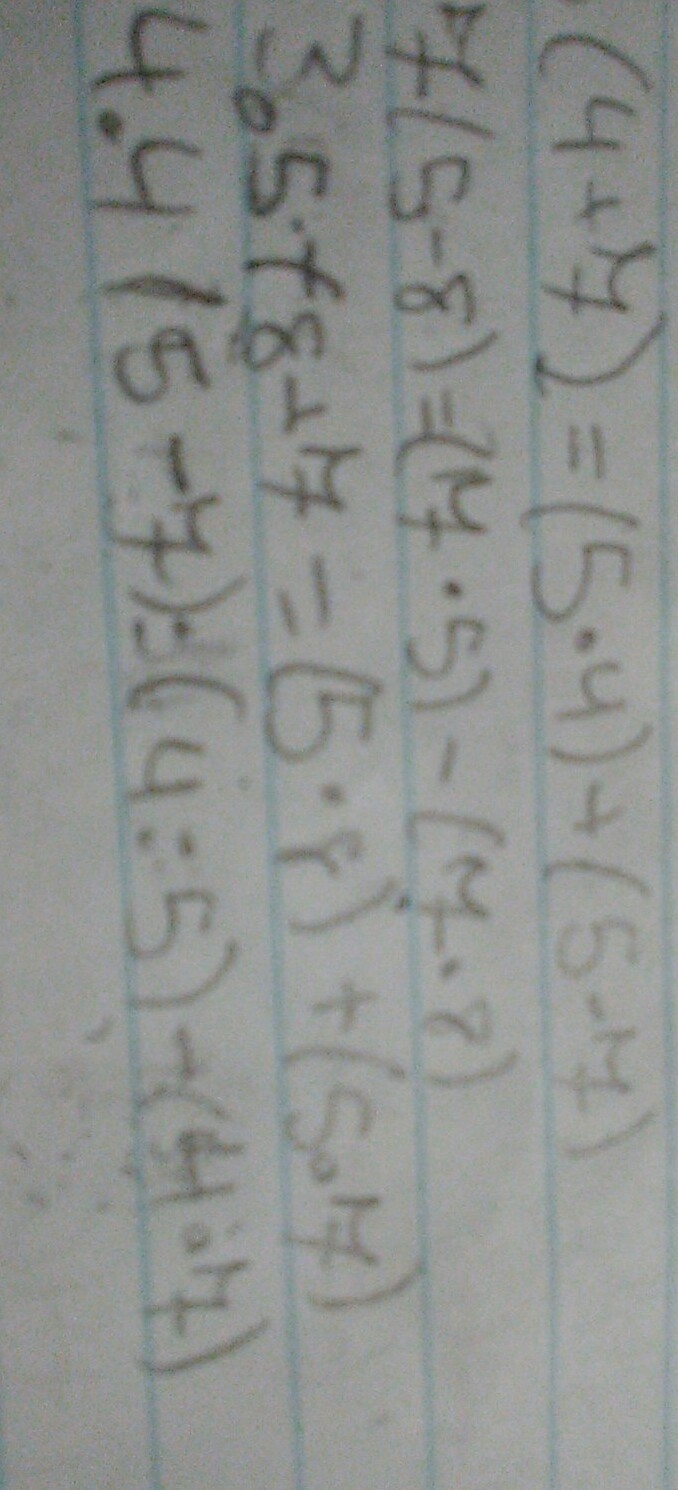 (4+7)=(5·4)+(5-7)
7(5-8)=(7·5)-(7·8)
3. 5·(8+7=(5·8)+(5·7)
4. 4(5-7)=(4·5)-(4·7)